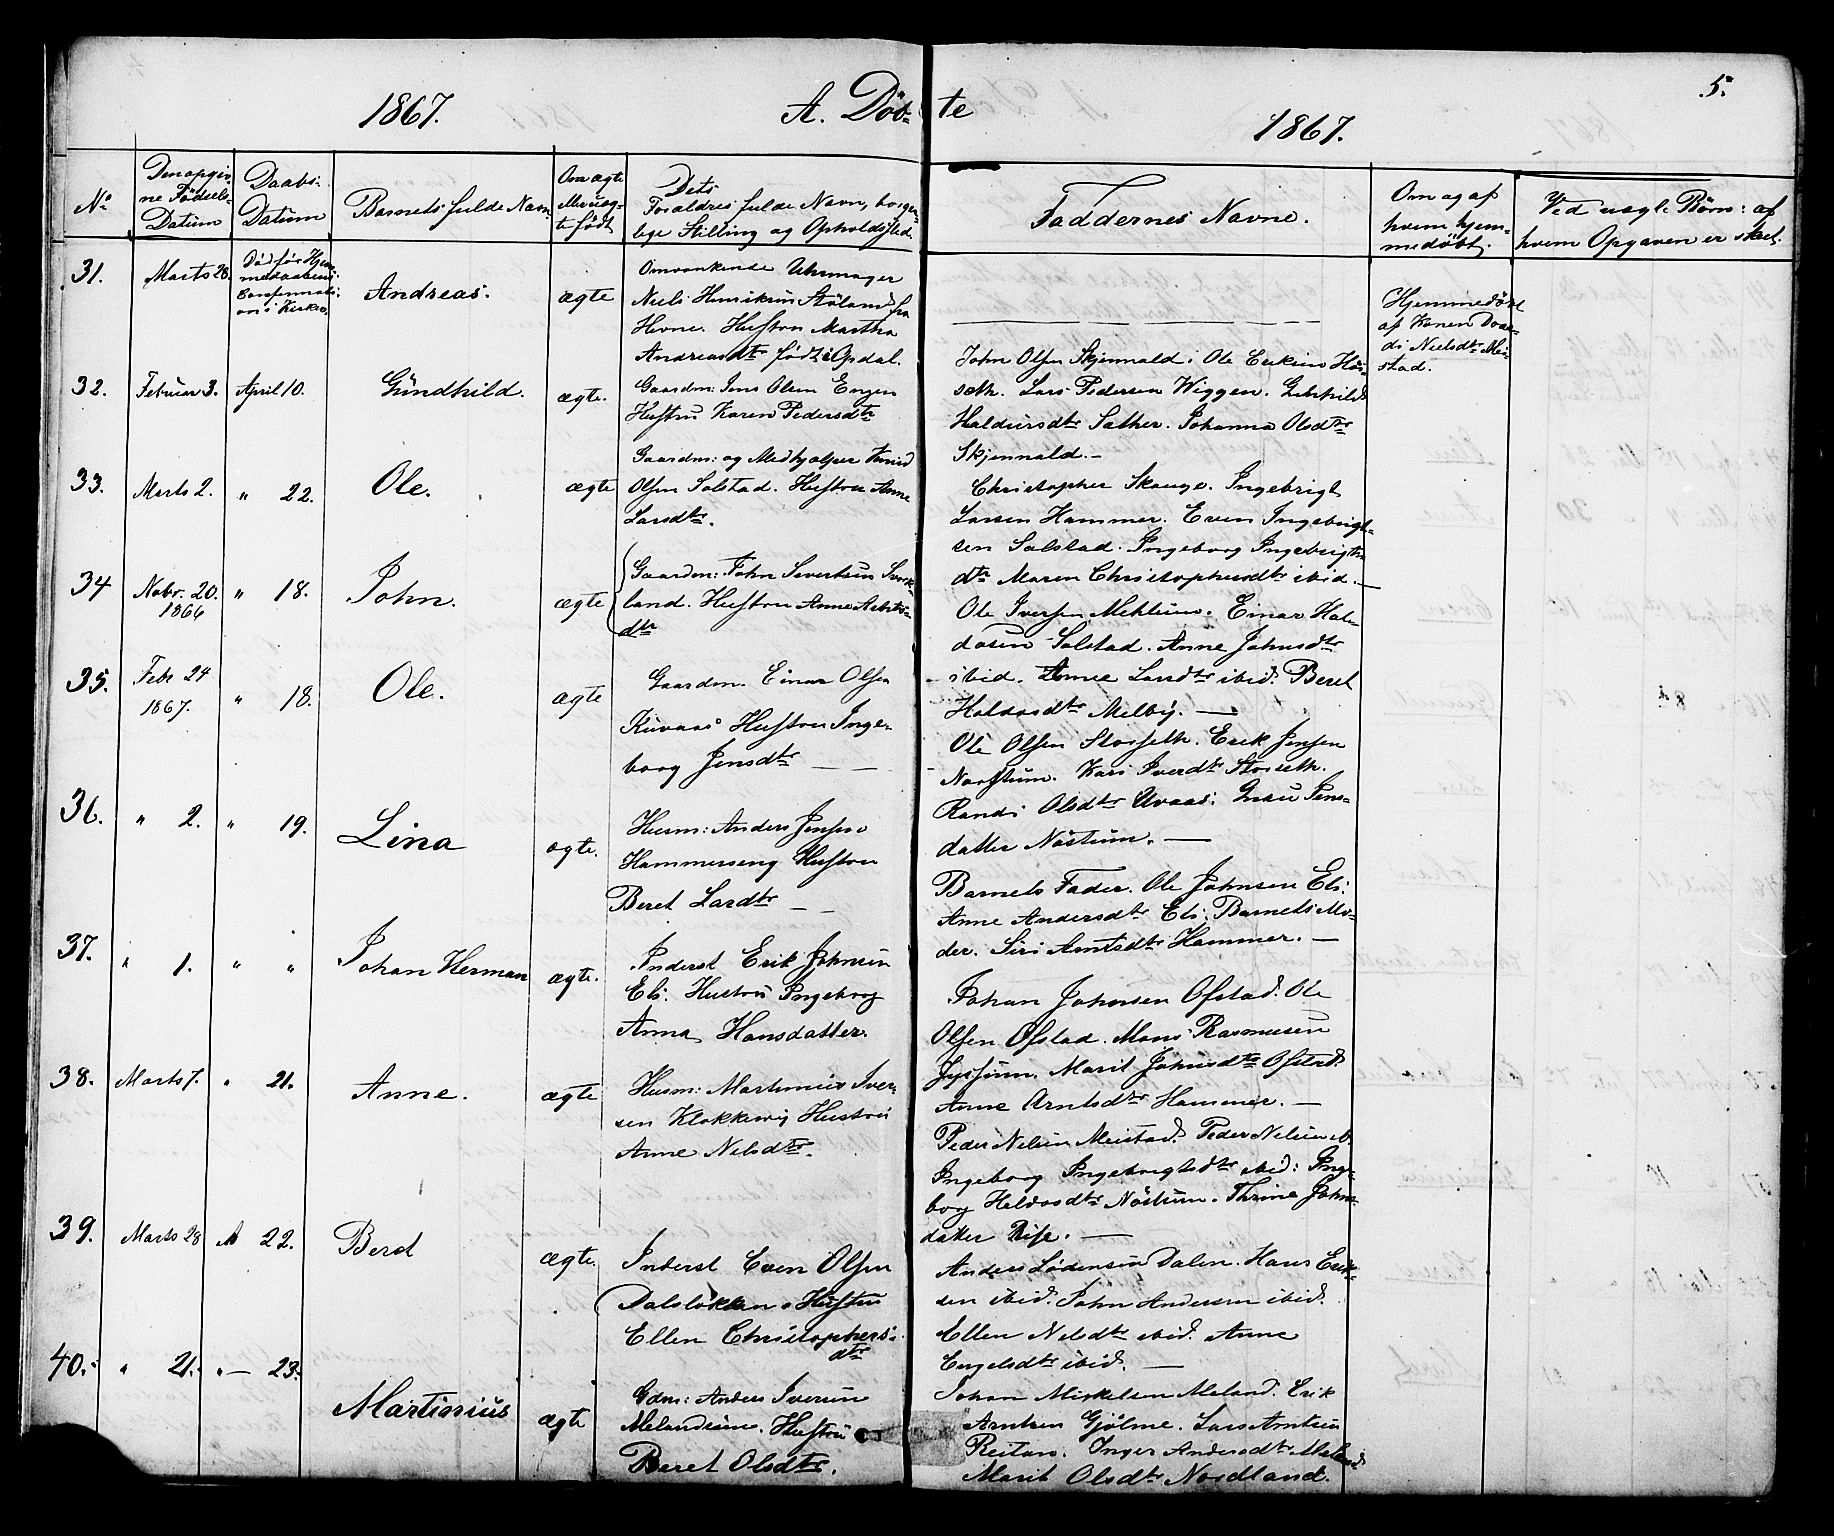 5.
1867. A. Døb- te 1867.
No
Den opgiv-
ne Fødsels-
Datum
Daabs-
Datum
Barnets fulde Navn
Om ægte
eller uæg-
te født
Dets
Forældres fulde Navn, borger-
lige Stilling og Opholdssted.
Faddernes Navne.
Om og af
hvem hjem-
medøbt.
Ved uægte Børn: af
hvem Opgaven er skeet.
31. Marts 28. Andreas. ægte
Omvankende Uhrmager
Niels Henriksen Støland fra
Hevne. Hustru Martha
Andreasdtr født i Opdal.
Hjemmedøbt
af Konen
Nielsdtr Mei-
stad.
32. Februar 3. April 10. Gundhild. ægte.
Gaardm: Jens Olsen Engen
Hustru Karen Pedersdtr
John Olsen Skjenald. Ole Eriksen
Lars Pedersen Wiggen.
Haldorsdtr Sather. Johanna Olsdtr
Skjenald.-
33. Marts 2. " 22. Ole. ægte
Gaardm: og Medhjælper
Olsen Solstad. Hustru Anne
Larsdtr.
Christopher Skauge. Ingebrigt
Larsen Hammer. Even Ingebrigt-
sen Solstad. Ingeborg Ingebrigts
dtr Maren Christophersdtr ibid.-
34 Nobr. 20. 1866 " 18. John. ægte
Gaardm: John Sivertsen
land. Hustru Anne
dtr
Ole Iversen Mehlum. Einar Hal-
dosen Solstad. Anne Johnsdtr
ibid. Anne Larsdtr ibid. Beret
Haldosdtr Melby.-
35. Febr 24 1867. " 18. Ole. ægte
Gaardm. Einar Olsen
Kuvaas Hustru Inge-
borg Jensdtr -
Ole Olsen Storseth. Erik Jensen
Norstum. Kari Iversdtr Storseth.
Randi Olsdtr Uvaas. Jens-
datter Nøstum.-
36. " 2. " 19. Lina ægte.
Husm: Anders Jensen
Hammerseng Hustru
Beret Larsdtr -
Barnets Fader. Ole Johnsen Eli.
Anne Andersdtr Eli. Barnets Mo-
der. Siri Arntsdtr Hammer.-
37. " 1. " " Johan Herman ægte.
Inderst Erik Johnsen
Eli. Hustru Ingeborg
Anna Hansdatter.
Johan Johnsen Ofstad. Ole
Olsen Ofstad. Mons Rasmusen
Marit Johnsdtr Ofstad.
Anne Arntsdtr Hammer.-
38. Marts 7. " 21. Anne. ægte
Husm: Martinus Iver-
sen Klokkervig Hustru
Anne Nilsdtr.
Peder Nelsen Meistad. Peder Nelsen
Ingeborg Ingebrigtsdtr ibid: Inge-
borg Haldosdtr Nøstum. Thrine Johns-
datter Rise.-
39. Marts 28 A 22. Berd ægte.
Inderst Even Olsen
Dalsløkken. Hustru
Ellen Christophers-
dtr
Anders Dalen. Hans Erik-
sen ibid. John Andersen ibid.
Ellen Nelsdtr ibid. Anne
Engelsdtr ibid.-
40. " 21. " - 23. Martinius ægte
Gdm: Anders Iversen
Hustru
Beret Olsdtr.
Johan Mikkelsen Meland. Erik
Arntsen Gjølme. Lars Arntsen
Reitan. Inger Andersdtr Meland
Marit Olsdtr Nordland.